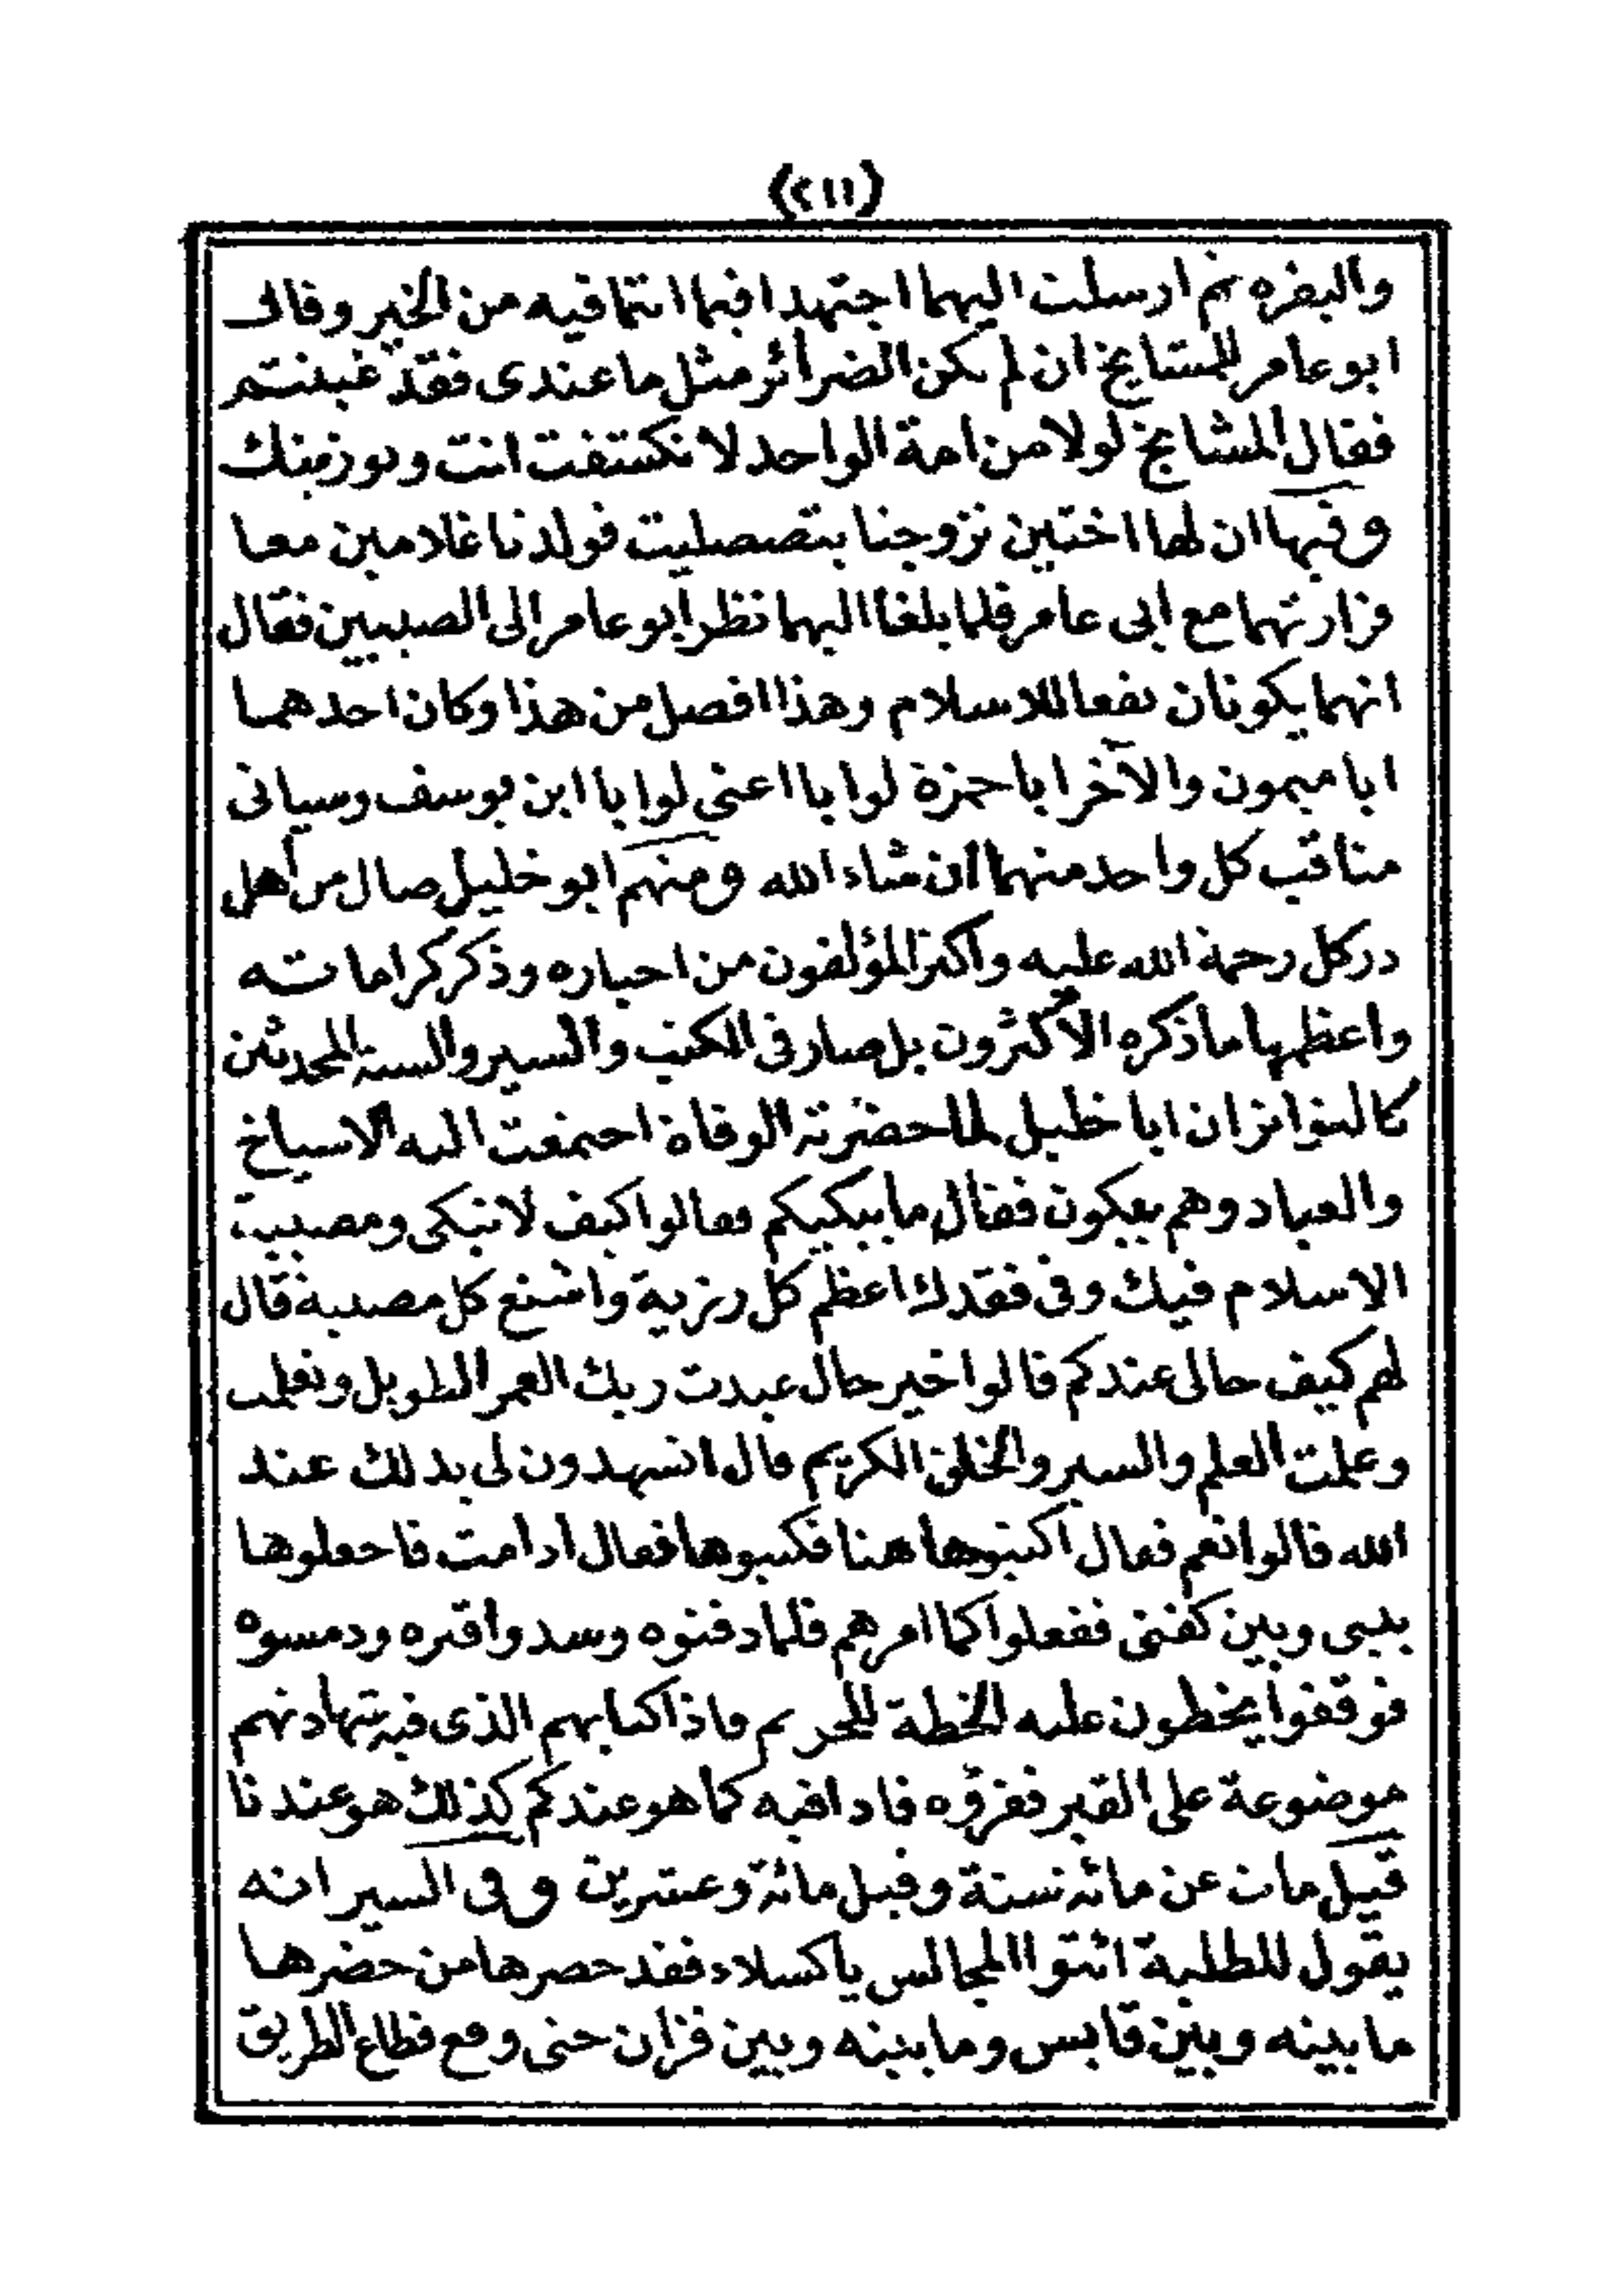 (٢١١)
والبقره ثم ارسلت اليهما اجتهدا فيما انتما فيه من الخير وقال
ابو عامر للمشايخ ان لم يكن الضرائر مثل ما عندى فقد غبنتم
فقال المشايخ لولا من امة الواحد لانكشفت انت وبوزمنك
وفيها ان لها اختين تزوجتا بتصصليت فولدتا غلامين معا
فزارتهما مع ابى عامر فلما بلغا اليهما نظر ابو عامر الى الصبيين فقال
انهما يكونان نفعا للاسلام وهذا افضل من هذا وكان احدهما
ابا ميمون والآخر ابا حمزة لوابا اعنى لوابا ابن يوسف وسياتى
مناقب كل واحد منهما ان شاء الله ومنهم ابو خليل صال من اهل
دركل رحمة الله عليه واكثر المؤلفون من اخباره وذكر كراماته
واعظمها ما ذكره الاكثرون بل صار فى الكتب والسير والسنة المحدثين
كالمتواتر ان ابا خليل لما حضرته الوفاة اجتمعت اليه الاشياخ
والعباد وهم يبكون فقال ما يبكيكم فقالوا كيف لا نبكى ومصيبة
الاسلام فيك وفى فقدك اعظم كل رزية واشنع كل مصيبة قال
لهم كيف حالى عندكم قالوا خير حال عبدت ربك العمر الطويل وتعلمت
وعلمت العلم والسير والخلق الكريم قال اتشهدون لى بذلك عند
الله قالوا نعم فقال اكتبوها هنا فكتبوها فقال اذا مت فاجعلوها
بينى وبين كفنى ففعلوا كما امرهم فلما دفنوه وسدوا قبره ودمسوه
فوقفوا يخطون عليه الخطة للحريم فاذا كتابهم الذى فيه شهادتهم
موضوعة على القبر فقرؤه فاذا فيه كما هو عندكم كذلك هو عندنا
قيل مات عن مائه سنة وقيل مائة وعشرين وفى السير انه
يقول للطلبة ائتوا المجالس يا كسلاء فقد حضرها من حضرها
ما بينه وبين قابس وما بينه وبين فزان حتى وقع قطاع الطريق